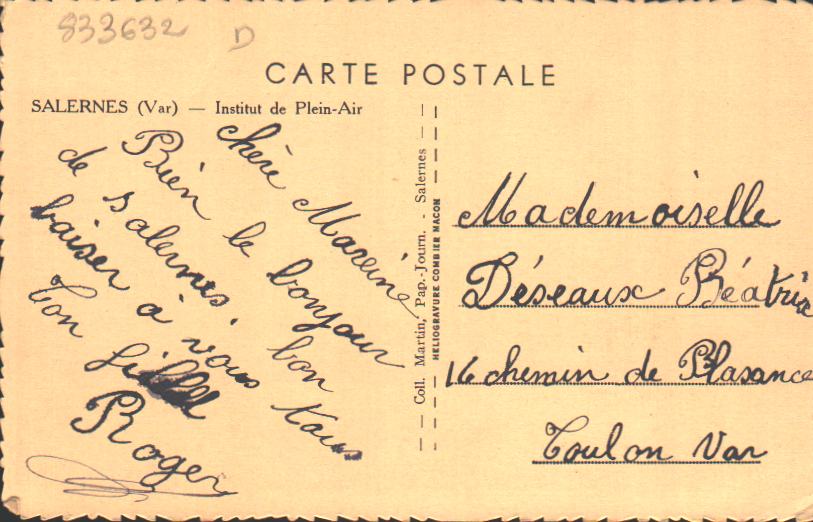 833632 D
CARTE POSTALE
SALERNES (Var) — Institut de Plein-Air
chère Mareine
Bien le bonjour
de Salernes. bon
baiser à vous tous
Ton
Roger
— Coll. Martin, Pap.-Journ. - Salernes —
HELIOGRAVURE COMBIER MACON
Mademoiselle
Déseaux Béatrix
16 chemin de Plasance
Toulon Var